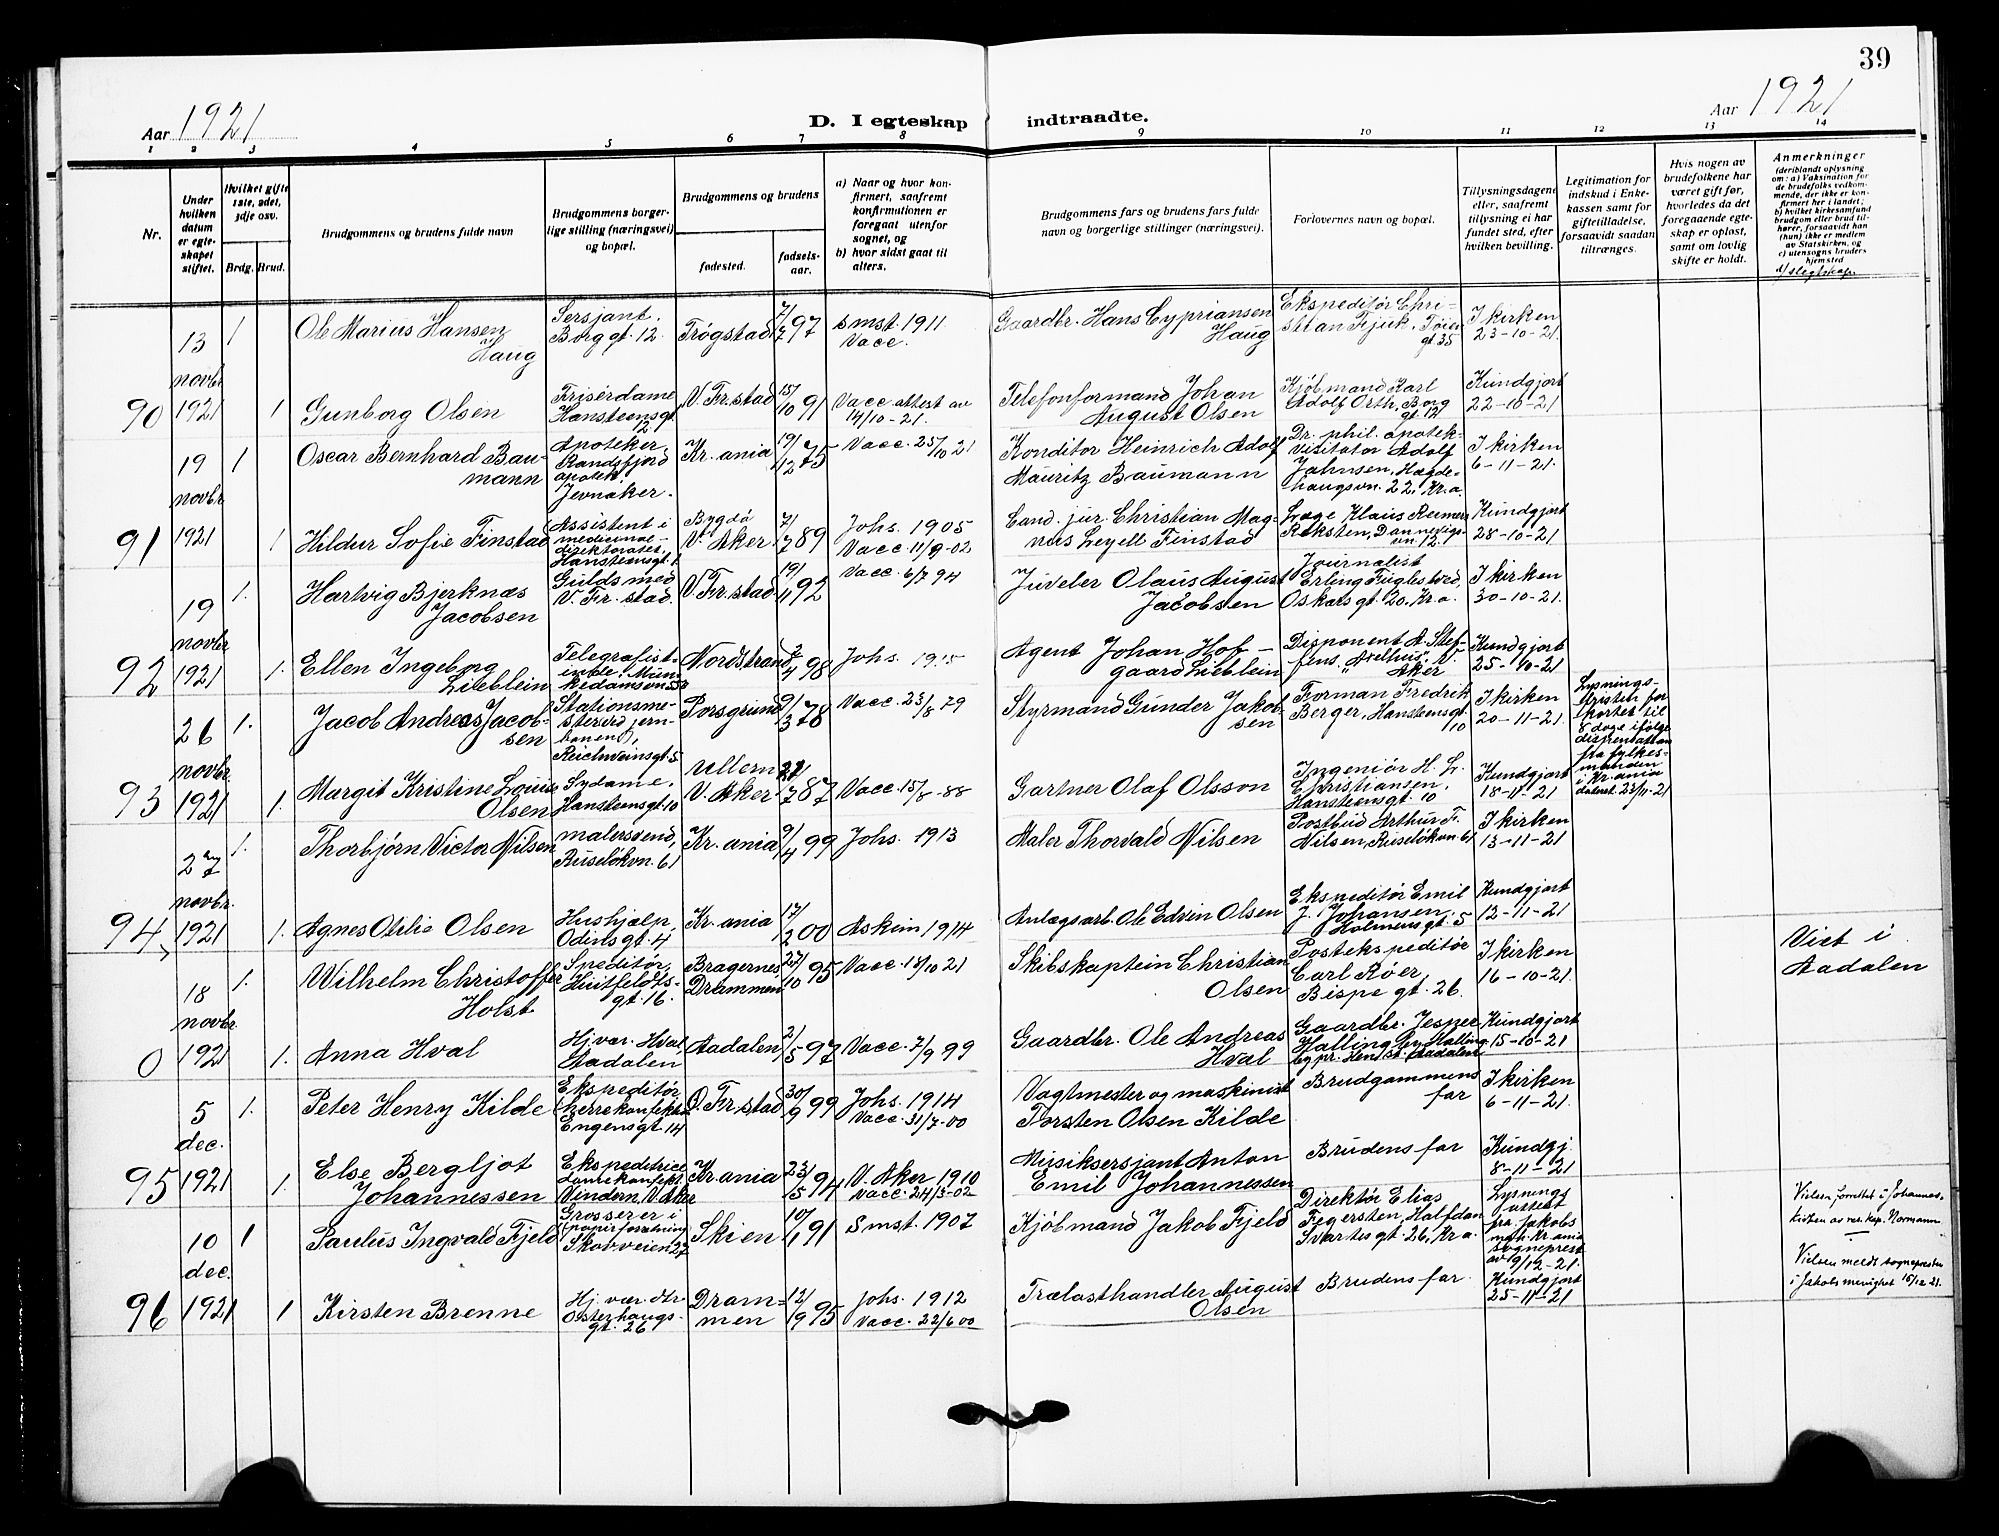 39
Aar 1921
D. I egteskap indtraadte.
Aar 1921
1 2 3 4 5 6 7 8 9 10 11 12 13 14
Nr.
Under hvilken datum er egteskapet stiftet.
Hvilket gifte 1ste, 2det, 3dje osv.
Brdg. Brud.
Brudgommens og brudens fulde navn
Brudgommens borgerlige stilling (næringsvei) og bopæl.
Brudgommens og brudens
fødested.
fødselsaar.
a) Naar og hvor konfirmert, saafremt konfirmationen er foregaat utenfor sognet, og
b) hvor sidst gaat til alters.
Brudgommens fars og brudens fars fulde navn og borgerlige stillinger (næringsvei).
Forlovernes navn og bopæl.
Tillysningsdagene eller, saafremt tillysning ei har fundet sted, efter hvilken bevilling.
Legitimation for indskud i Enkekassen samt for giftetilladelse, forsaavidt saadan tiltrænges.
Hvis nogen av brudefolkene har været gift før, hvorledes da det foregaaende egteskap er opløst, samt om lovlig skifte er holdt.
Anmerkninger
(deriblandt oplysning om: a) Vaksination for de brudefolks vedkommende, der ikke er konfirmert her i landet;
b) hvilket kirkesamfund brudgom eller brud tilhører, forsaavidt han (hun) ikke er medlem av Statskirken, og
c) utensogns bruders hjemsted
d/ slegtskap.
90
13 novbr 1921
1
Ole Marius Hansen Haug
Sersjant. Borg gt. 12.
Trøgstad
7/7 97
Smst. 1911 Vacc.
Gaardbr. Hans Cypriansen Haug
Ekspeditør Christian Fjuk, Tøiengt. 35
I kirken 23-10-21.
1
Gunborg Olsen
Frisørdame Hansteensgt. 12
V. Fr. stad
15/10 91
Vacc attest av 14/10-21.
Telefonformand Johan August Olsen
Kjøbmand Karl Adolf Orth, Borg gt. 12
Kundgjort 22-10-21
91
19 novbr. 1921
1
Oscar Bernhard Baumann
Apoteker Randsfjord apotek. Jevnaker.
Kr. ania
19/12 75
Vacc. 25/10 21
Konditor Heinrich Adolf Mauritz Baumann
Dr. phil. apotek-visitator Adolf Jahnsen, Hægdehaugsvn. 22, Kr.a.
I kirken 6-11-21.
1
Hildur Sofie Finstad
Assistent i medicinaldirektoratet, Hansteensgt. 1
Bygdø V. Aker
7/7 89
Johs. 1905 Vacc. 11/9-02
Cand. jur. Christian Magnus Leyell Finstad
Læge Klaus Reimers Roksten, Dannevigsvn. 12.
Kundgjort 28-10-21
92
19 novbr 1921
1.
Hartvig Bjerknæs Jacobsen
Guldsmed V. Fr. stad.
V. Fr. stad
19/1 92
Vacc. 6/7 94
Juveler Olaus August Jacobsen
Journalist Erling Fuglestved, Oskars gt. 20. Kr.a.
I kirken 30-10-21.
1.
Ellen Ingeborg Lieblein
Telegrafistinde, Munkedamsvn 53
Nordstrand
2/4 98
Johs. 1915
Agent Johan Hofgaard Lieblein
Disponent A. Steffens, V. Aker
Kundgjort 25-10-21
93
26 novbr. 1921
1.
Jacob Andreas Jacobsen
Stationsmester ved jernbanen, Reichweinsgt. 5
Porsgrund
9/3 78
Vacc. 23/8 79
Styrmand Gunder Jakobsen
Forman Fredrik Berger, Hansteensgt 110
I kirken 20-11-21.
Lysningsfristen forkortet til 8 dage ifølge dispensation fra fylkesmanden i Kr.ania dateret 23/11-21
1.
Margit Kristine Louise Olsen
Sydame, Hansteensgt. 10
Ullern V. Aker
21/7 87
Vacc. 15/8-88
Gartner Olaf Olsson
Ingeniør H. L. Christiansen, Hansteensgt. 10
Kundgjort 18-11-21
94
27 novbr. 1921
1.
Thorbjørn Victor Nilsen
malersvend, Ruseløkvn. 61
Kr. ania
9/4 99
Johs. 1913
Maler Thorvald Nilsen
Postbud Arthur F. Nilsen, Ruseløkvn. 61
I kirken 13-11-21
1.
Agnes Otilie Olsen
Hushjælp, Odins gt. 4
Kr. ania
17/2 00
Askim 1914
Anlægsarb. Ole Edvin Olsen
Ekspeditør Emil J. Johansen, Holmens gt. 5
Kundgjort 12-11-21
0
18 novbr. 1921
1.
Wilhelm Christoffer Holst
Speditør, Huitfeldtsgt. 16.
Bragernes Drammen
27/10 95
Vacc. 18/10 21
Skibskaptein Christian Olsen
Postekspeditør Carl Røer, Bispe gt. 26.
I kirken 16-10-21.
Viet i Aadalen
1.
Anna Hval
Hj. vær. Hval, Aadalen
Aadalen
2/5 97
Vacc. 7/9 99
Gaardbr. Ole Andreas Hval
Gaardbr. Jesper Halling, Halling pr. Hen st. Aadalen
Kundgjort 15-10-21
95
5 dec. 1921
1.
Peter Henry Kilde
Ekspeditør (herrekonfekt.) Engensgt 14
Ø. Fr. stad
30/9 99
Johs. 1914 Vacc. 31/7-00
Vagtmester og maskinist Torsten Olsen Kilde
Brudgommens far
I kirken 6-11-21.
1.
Else Bergljot Johannessen
Ekspeditrice damekonfekt. Vindern, V. Aker
Kr. ania
23/5 94
V. Aker 1910 Vacc. 24/3-02
Musiksersjant Anton Emil Johannessen
Brudens far
Kundgj. 8-11-21
96
10 dec. 1921
1
Paulus Ingvald Fjeld
Grosserer i papirforretning Skovveien 27
Skien
10/1 91
Smst. 1907
Kjøbmand Jakob Fjeld
Direktør Elias Fegersten, Halfdan Svartes gt. 26, Kr a.
Lysningsattest fra Jakobs men. Kr. ania sogneprest av 9/12-21.
Vielsen forrettet i Johanneskirken av res. kap. Normann
Vielsen meldt sognepresten i Jakobs menighet 15/12 21.
1
Kirsten Brenne
Hj. vær. dtr Osterhausgt. 26
Drammen
12/9 95
Johs. 1912 Vacc. 22/6 00
Trælasthandler August Olsen
Brudens far
Kundgjort 25-11-21